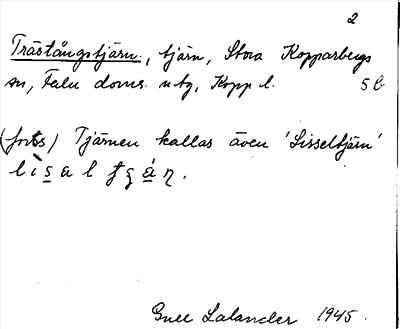 2
Trästångstjärn, tjärn, Stora Kopparbergs
sn, Falu doms. utg, Kopp l. 5 b
(forts) Tjärnen kallas även 'Lisseltjärn'
Lalander 1945.